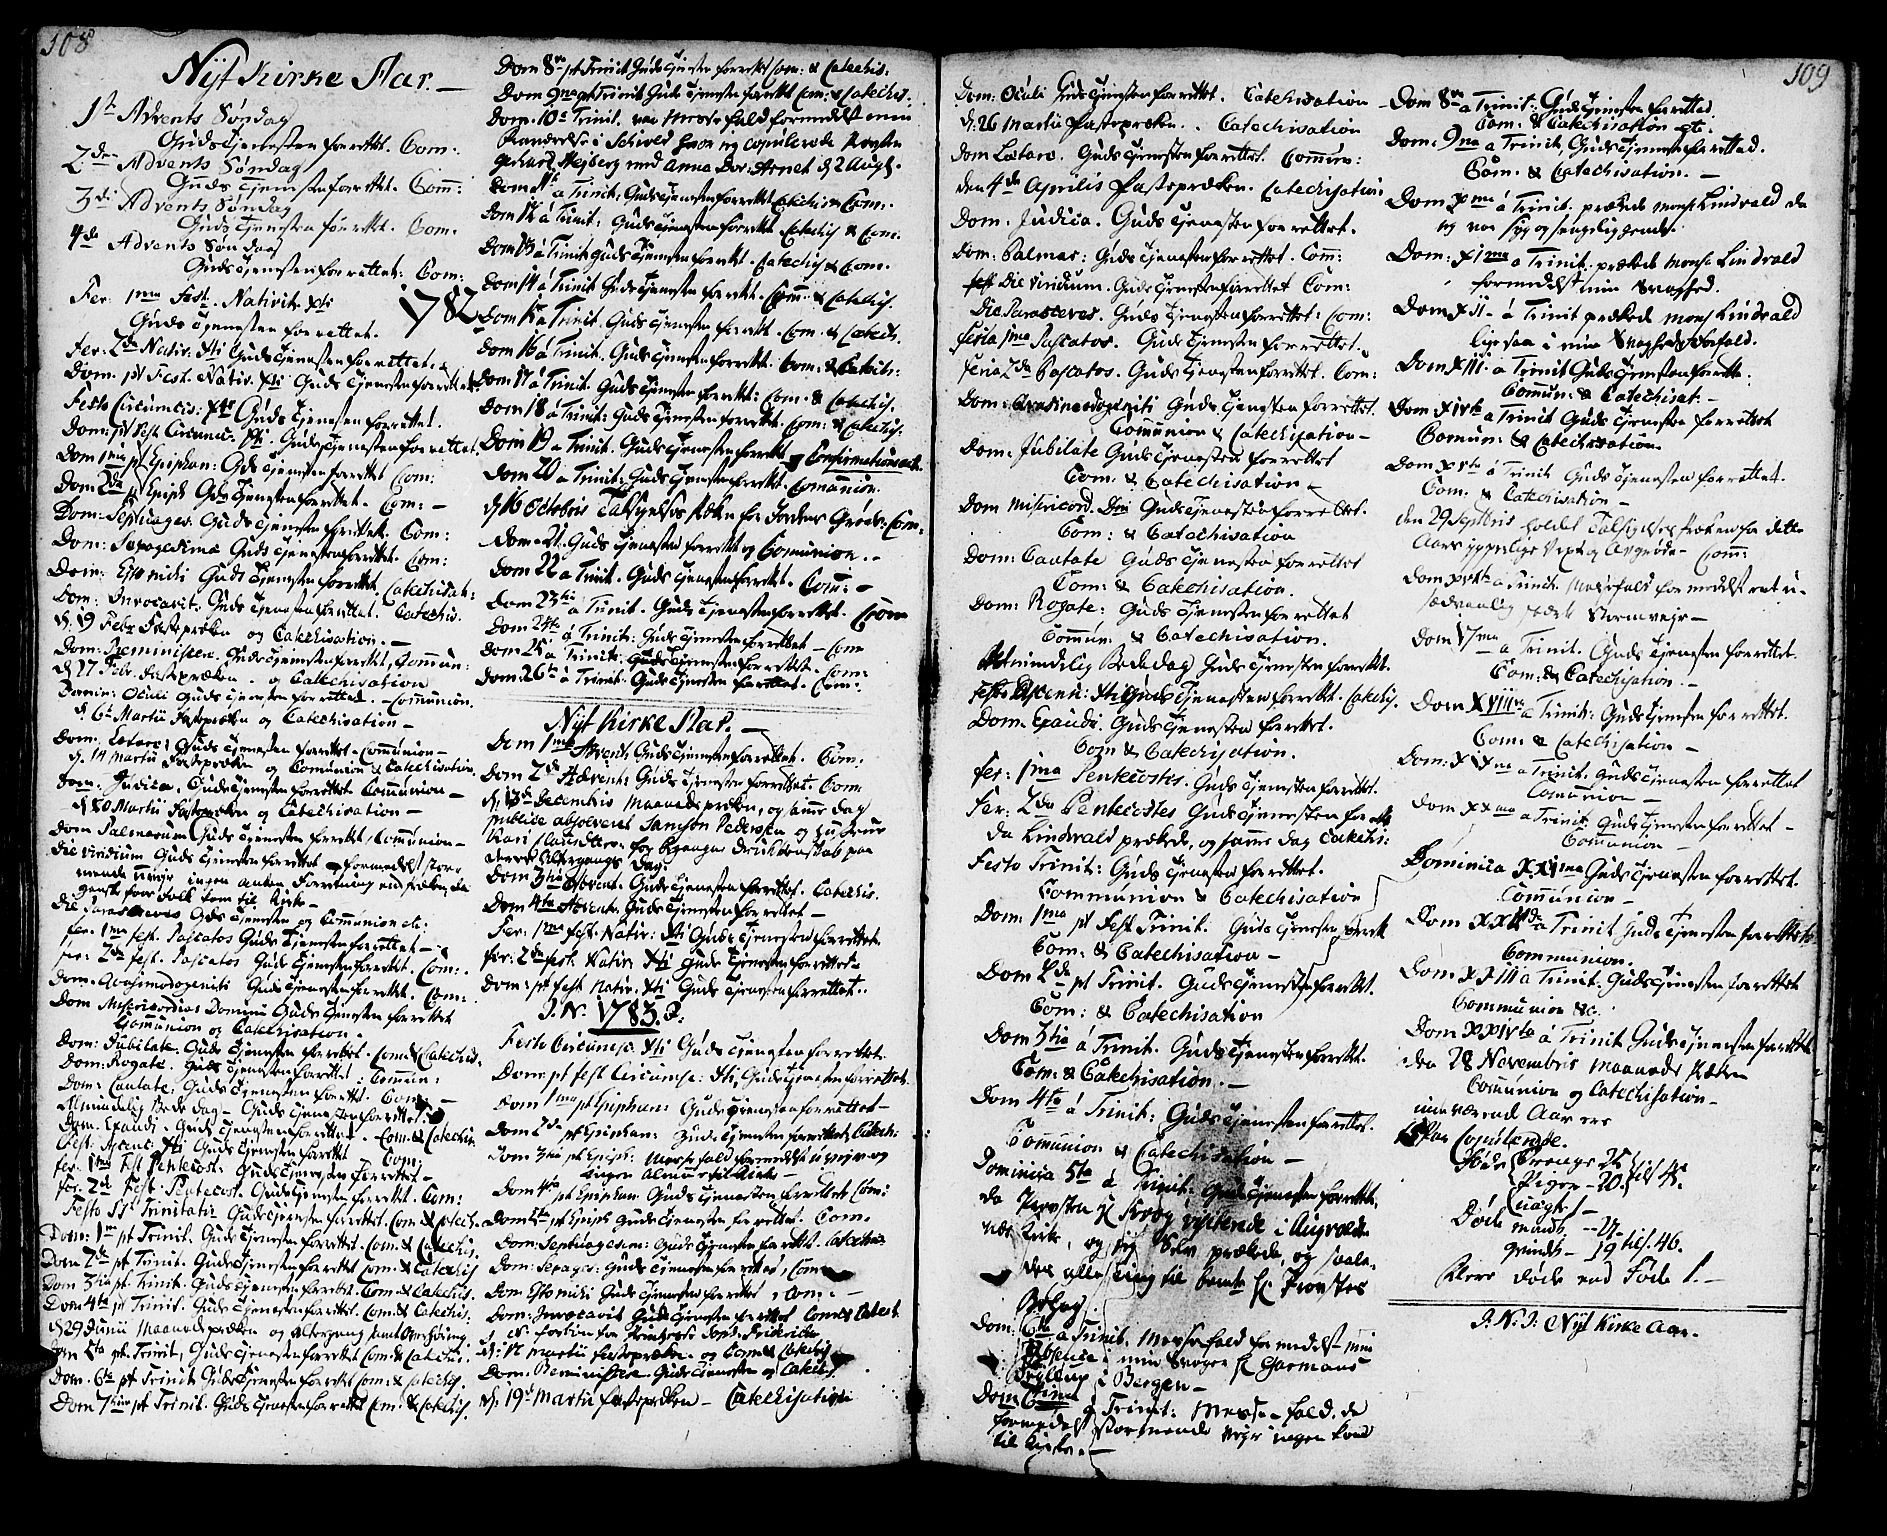 108
Nyt Kirke Aar.
1ste Advents Søndag
Guds Tjenesten forrettet. Com:
2den Advents Søndag
Guds Tjenesten forrettet. Com:
3de Advents Søndag
Guds Tjenesten forrettet. Com.
4de Advents Søndag
Guds Tjenesten forrettet. Com:
Fer: 1ma Fest. Nativit. Xti
Guds Tjenesten forrettet.
1782
Fer: 2da Nativ. Xti Guds Tjenesten forrettet.
Dom. pt Fest. Nativ. Xti Guds Tjenesten forrettet
Festo Circumcis: Xti Guds Tjenesten forrettet.
Dom: pt Fest. Circumc. Xti. Guds Tjenesten forrettet.
Dom 1ma pt Epiphan: Gds Tjenesten forrettet Com:
Dom 2da pt Epiph Gds Tjenesten forrettet. Com: -
Dom: Septuages: Guds Tjenesten forrettet. Com:
Dom: Sexagesima Guds Tjenesten forrettet. Com:
Dom: Esto mihi Guds Tjenesten forrettet. Catechisat:
Dom: Invocavit. Guds Tjenesten forrettet. Catechis.
d. 19 Febr Fastepræken og Catechisation. -
Dom: Reminiscere. Guds Tjenesten forrettet, Commun:
d. 27 Febr. Fastepræken. og Catechisation
Domin: Oculi Guds Tjenesten forrettet. - Communion.
d. 6te Martii Fastepræken og Catechisation -
Dom. Letare; Guds Tjenesten forrettet. Communion -
d. 14 Martii Fastepræken og Comunion & Catechisation
Dom. Judica. Guds Tjenesten forrettet Communion -
d. 20 Martii Fastepræken og Catechisation -
Dom Palmarum Guds Tjenesten forrettet, Communion -
Die viridium Guds Tjenesten forrettet formedelst stor-
mende uveyr ingen anden Forretning end præken, da
ganske faae Folk kom til Kirke -
Die Parasceves Gds Tjenesten og Communion etc:
Fer. 1ma fest. Pascatos Guds Tjenesten forrettet -
Fer: 2da fest. Pascatos Guds Tjenesten forrettet. Com:
Dom. Qvasimodogeniti Guds Tjenesten forrettet. Com:
Dom. Misericordias Domini Guds Tjenesten forrettet
Communion og Catechisation.
Dom: Jubilate. Guds Tjenesten forrettet. Com & Catechis.
Dom: Rogate. Guds Tjenesten forrettet. Commun:
Dom: Cantate. Guds Tjenesten forrettet. Com. -
Almindelig Bede dag - Guds Tjenesten forrettet.
Dom. Exaudi. Guds Tjenesten forrettet. - Com & Catechis
Fest: Ascens: Xti Guds Tjenesten forrettet Com:
fer. 1ma Fest Pentecost. Guds Tjenesten forrettet -
fer. 2da Fest. Pentecost. Guds Tjenesten forrettet. Com:
Festo SS Trinitatis Guds Tjenesten forrettet. Com & Catech.
Dom: 1ma pt Trinit. Guds Tjenesten forrettet. Com & Catechis.
Dom 2da pt Trinit. Guds Tjenesten forrettet Com & Catechis
Dom 3tia pt Trinit. Guds Tjenesten forrettet Com & Catechis.
Dom 4ta pt Trinit. Guds Tjenesten forrettet. Com & Catechis.
d. 29 Junii Maaneds præken og Altergang samt Overhøring
Dom 5ta pt Trinit, Guds Tjenesten forrettet Com & Catechis.
Dom. 6ta pt Trinit Guds Tjenesten forrettet Com: & Catechis.
Dom 7tima pt Trinit. Guds Tjenesten forrettet Com: & Catechis.
Dom 8va pt Trinit Guds Tjenesten forrettet Com: & Catechis:
Dom 9na pt Trinit Guds Tjenesten forrettet Com: & Catechis.
Dom: 10a Trinit. var Messefald formedelst min
Nærværelse i Schiold hvor jeg copulerede
Gerhard Hejberg med Anna Dor: Arnet d 2 Aug.
Dom 11te a Trinit: Guds Tjenesten forrettet Catechis & Com.
Dom 12 á Trinit: Guds Tjenesten forrettet Catechis & Com:
Dom 13 á Trinit Guds Tjenesten forrettet. Catechis & Com.
Dom 14 á Trinit Guds Tjenesten forrettet. Com: & Catechis.
Dom 15 a Trinit. Guds Tjenesten forrettet. Com. & Catech.
Dom 16 á Trinit. Guds Tjenesten forrettet. Com: & Catech:
Dom 17 á Trinit: Guds Tjenesten forrettet: Com. & Catechis.
Dom 18 á Trinit: Guds Tjenesten forrettet. Com: & Catechis:
Dom 19 a Trinit. Guds Tjenesten forrettet og Confirmationsact.
Dom 20 a Trinit: Guds Tjenesten forrettet. Comunion.
d 16 Octobris Taksigelses Præken for Jordens Grøde. Com.
Dom. 21. Guds Tjenesten forrettet og Comunion. -
Dom 22 a Trinit. Guds Tjenesten forrettet. Com: -
Dom 23tia a Trinit. Guds Tjenesten forrettet. Com
Dom 24ta á Trinit: Guds Tjenesten forrettet - Com
Dom 25 a Trinit: Guds Tjenesten forrettet. Com:
Dom: 26ta á Trinit: Guds Tjenesten forrettet. Com:
Nyt Kirke Aar. -
Dom 1ma Advent: Guds Tjenesten forrettet. Com:
Dom 2da Advent: Guds Tjenesten forrettet. Com
d. 13de Decembris Maanedspræken, og samme dag
publice absolveret Samson Pedersen og Hustrue
Kari Klausdtter for begangne
deres Altergangs dag.
Dom 3tia Advent. Guds Tjenesten forrettet. Catechis.
Dom 4ta Advent. Guds Tjenesten forrettet -
Fer: 1ma fest. Nativ: Xti Guds Tjenesten forrettet.
fer: 2da fest. Nativ. Xti Guds Tjenesten forrettet -
Dom: pt fest Nativ. Xti Guds Tjenesten forrettet.
J. N. 1783. J:
Festo Circumcis. Xti Guds Tjenesten forrettet.
Dom: pt fest Circumcis: Xti, Guds Tjenesten forrettet.
Dom 1ma pt Epiphan: Guds Tjenesten forrettet -
Dom 2da pt Epiphan: Guds Tjenesten forrettet, Catech:
Dom 3tia pt Epiph: Messefald formedelst uveyr og
ingen Almue til Kirke -
Dom 4ta pt Epiphan: Guds Tjenesten forrettet Com:
Dom 5ta pt Epiph Guds Tjenesten forrettet. Com.
Dom: Septuagesim: Guds Tjenesten forrettet. Catechis
Dom: Sexages: Guds Tjenesten forrettet, Com
Dom Esto mihi Guds Tjenesten forrettet, Com: -
Dom: Invocavit Guds Tjenesten forrettet Com & Catech
Sophi. Friderica
d: 12 Martii fasteprækn. og Com & Catechis
Dom: Reminiscere. Guds Tjenesten og Catechis
d. 19de Martii fasteprækn - Catechisation
109
Dom: Oculi Guds Tjenesten forrettet. Catechisation -
d: 26 Martii fasteprækn. Catechisation
Dom Lætare. Guds Tjenesten forrettet. Commun:
den 4de Aprilis Fasteprækn. Catechisation
Dom: Judica. Guds Tjenesten forrettet.
Dom: Palmar: Guds Tjenesten forrettet. Com:
fest Die Viridium. Guds Tjenesten forrettet Com:
Die Parasceves. Guds Tjenesten forrettet: Com:
Feria 1ma Pascatos. Guds Tjenesten forrettet.
Feria 2da Pascatos. Guds Tjenesten forrettet. Com:
Dom: Qvasimodogeniti Guds Tjenesten forrettet.
Comunion & Catechisation -
Dom: Jubilate Guds Tjenesten forrettet
Com: & Catechisation -
Dom Misericord. Dni Guds Tjenesten forrettet.
Com: & Catechisation
Dom: Cantate Guds Tjenesten forrettet
Com: & Catechisation.
Dom: Rogate: Guds Tjenesten forrettet
Commun: & Catechisation.
Almindelig Bededag Guds Tjenesten forrettet.
Festo Ascens: Xti Guds Tjenesten forrettet. Catechis.
Dom: Exaudi: Guds Tjenesten forrettet.
Com & Catechisation.
Fer: 1ma Pentecostes. Guds Tjenesten forrettet.
Fer: 2da Pentecostes Guds Tjenesten forrettet
da Lindvald prækede, og samme dag Catechis:
Festo Trinit: Guds Tjenesten forrettet.
Communion & Catechisation
Dom: 1ma pt Fest Trinit. Guds Tjenesten forrett
Com: & Catechisation -
Dom 2da pt Trinit. Guds Tjenesten forrettet.
Com: & Catechisation
Dom 3tia á Trinit. Guds Tjenesten forrettet.
Com: & Catechisation. -
Dom 4ta á Trinit: Guds Tjenesten forrettet.
Communion & Catechisation -
Dominica 5ta á Trinit: Guds Tjenesten forrettet,
da Provsten Hr Krog visiterede i Augvolds-
næs Kirke, og jeg selv prækede, og saale-
des alle ting til bemte Hr Provstes
Behag
Dom: 6ta a Trinit. Messefald formedelst min
Absence i min Svoger Hr Garmans
Bryllup i Bergen -
Dom 7tima a Trinit: Messe-fald, da
formedelst stormende Veyr ingen kom
til Kirke. -
Dom 8va a Trinit: Guds Tjenesten forrettet.
Com: & Catechisation etc:
Dom: 9na a Trinit, Guds Tjenesten forrettet.
Com: & Catechisation. -
Dom Xma á Trinit. prækede Mons. Lindvald da
jeg var syg og sengeliggende.
Dom: XIma a Trinit. prækede Mons. Lindvald
formedelst min Svaghed.
Dom XII. á Trinit prækede Mons Lindvald
ligesaa i min Svagheds forfald.
Dom XIII. a Trinit Guds Tjenesten forrette.
Commun: & Catechisat. -
Dom XIVta a Trinit Guds Tjenesten forrettet
Comun: & Catechisation
Dom XVta á Trinit Guds Tjenesten forrettet.
Com: & Catechisation -
den 29 Septbris holdet Taksigelses Præken for dette
Aars ypperlige Vext og Avgrøde - Com:
Dom XVIta a Trinit. Messefald formedelst et u-
sædvanlig stærk Stormveyr -
Dom 17ma a Trinit. Guds Tjenesten forrettet.
Com: & Catechisation. -
Dom XVIIIva a Trinit: Guds Tjenesten forrettet.
Com: & Catechisation -
Dom: XIXna a Trinit. Guds Tjenesten forrettet
Comunion -
Dom XXma a Trinit: Guds Tjenesten forrettet -
Communion -
Dominica XXIma Guds Tjenesten forrettet.
Communion -
Dom XXIIda a Trinit Guds Tjenesten forrettet
Communion.
Dom XXIII a Trinit. Guds Tjenesten forrettet
Communion &c.
Dom XXIVta á Trinit Guds Tjenesten forrettet
den 28 Novembris Maaneds Præken
Comunion og Catechisation -
nærværend Aar ere
Par Copulerede.
Fødde Drenge 25
Piger - 20. til 45.
Døde mandk - 27.
qvindk - 19 til. 46.
Flere døde end Fødde 1. -
J. N. J: Nyt Kirke Aar.